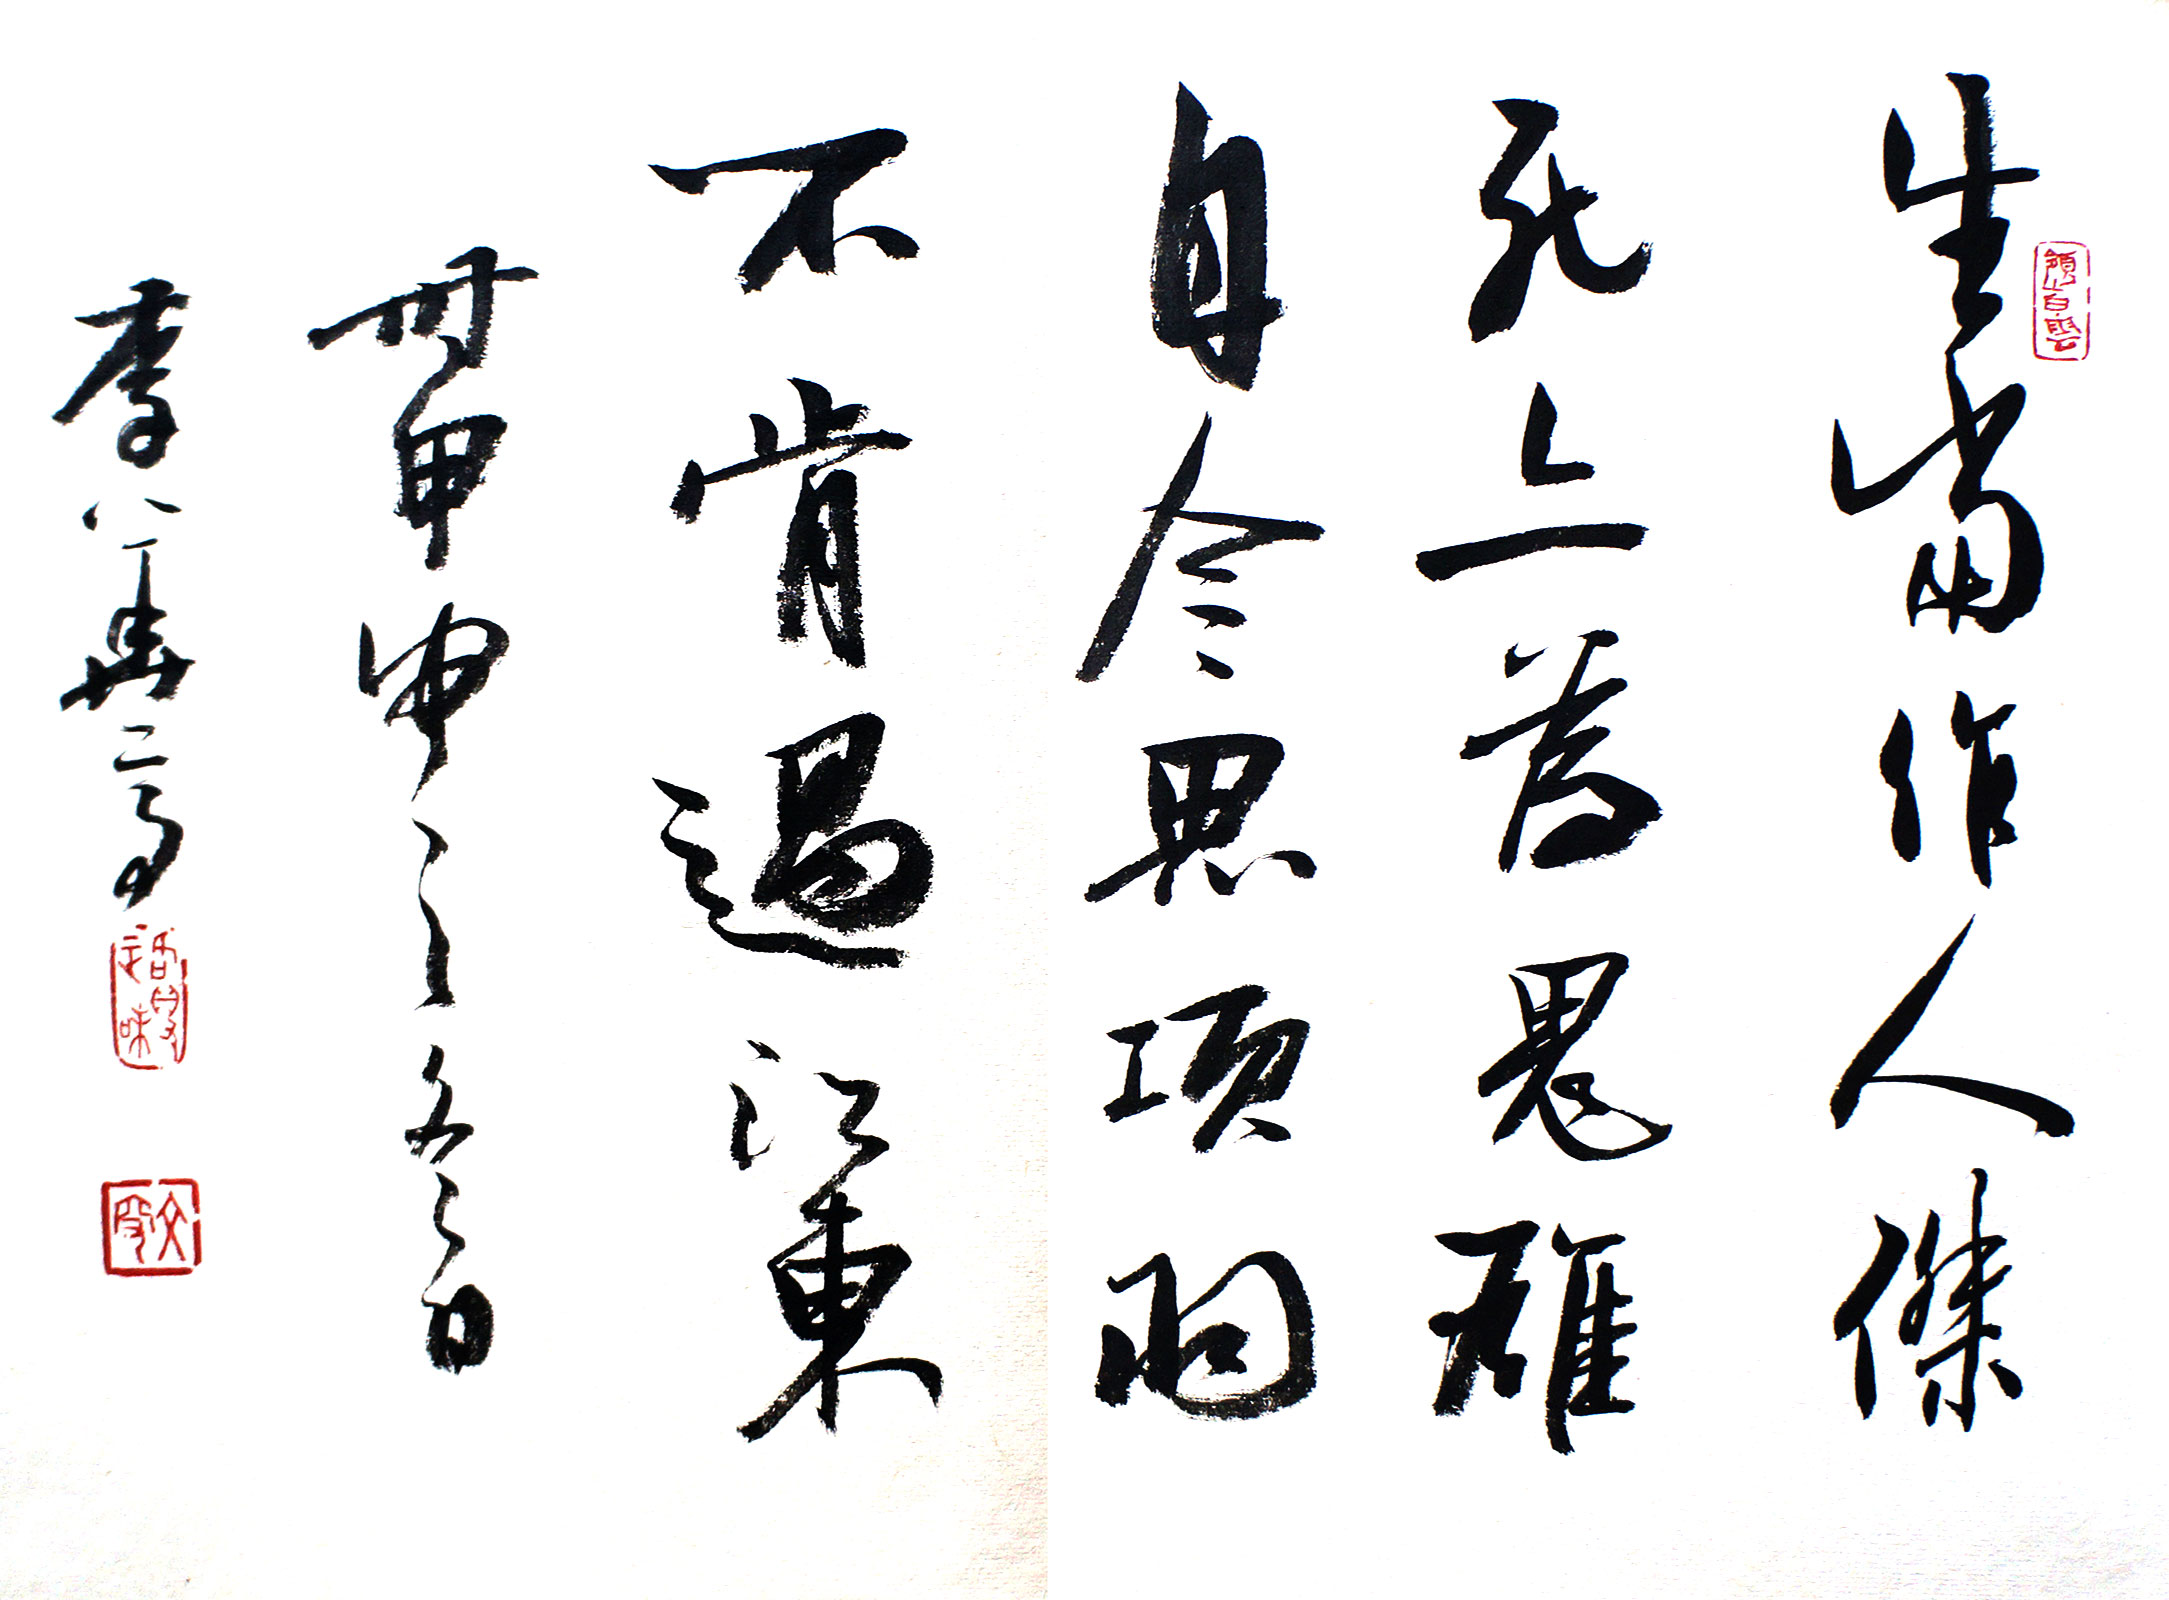 生當作人傑
死上為鬼雄
自今思項羽
不肯過江東
甲申之冬日
李八